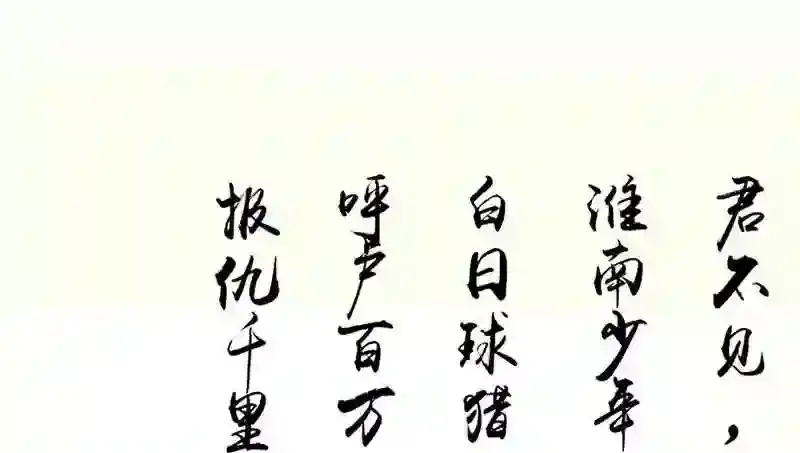 君不见，
淮南少年
白日球猎
呼卢百万
报仇千里